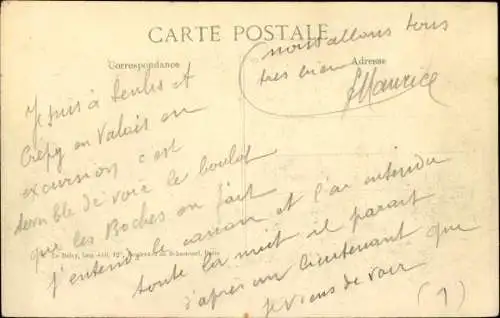 CARTE POSTALE
Correspondance
Adresse
nous allons tous
très bien
Maurice
Je suis à Senlis et
Crépy en Valois en
excursion c'est
terrible de voir le boulot
que les Boches on fait
j'entends le canon et l'ai entendu
toute la nuit il parait
d'après un lieutenant que
je viens de voir
(1)